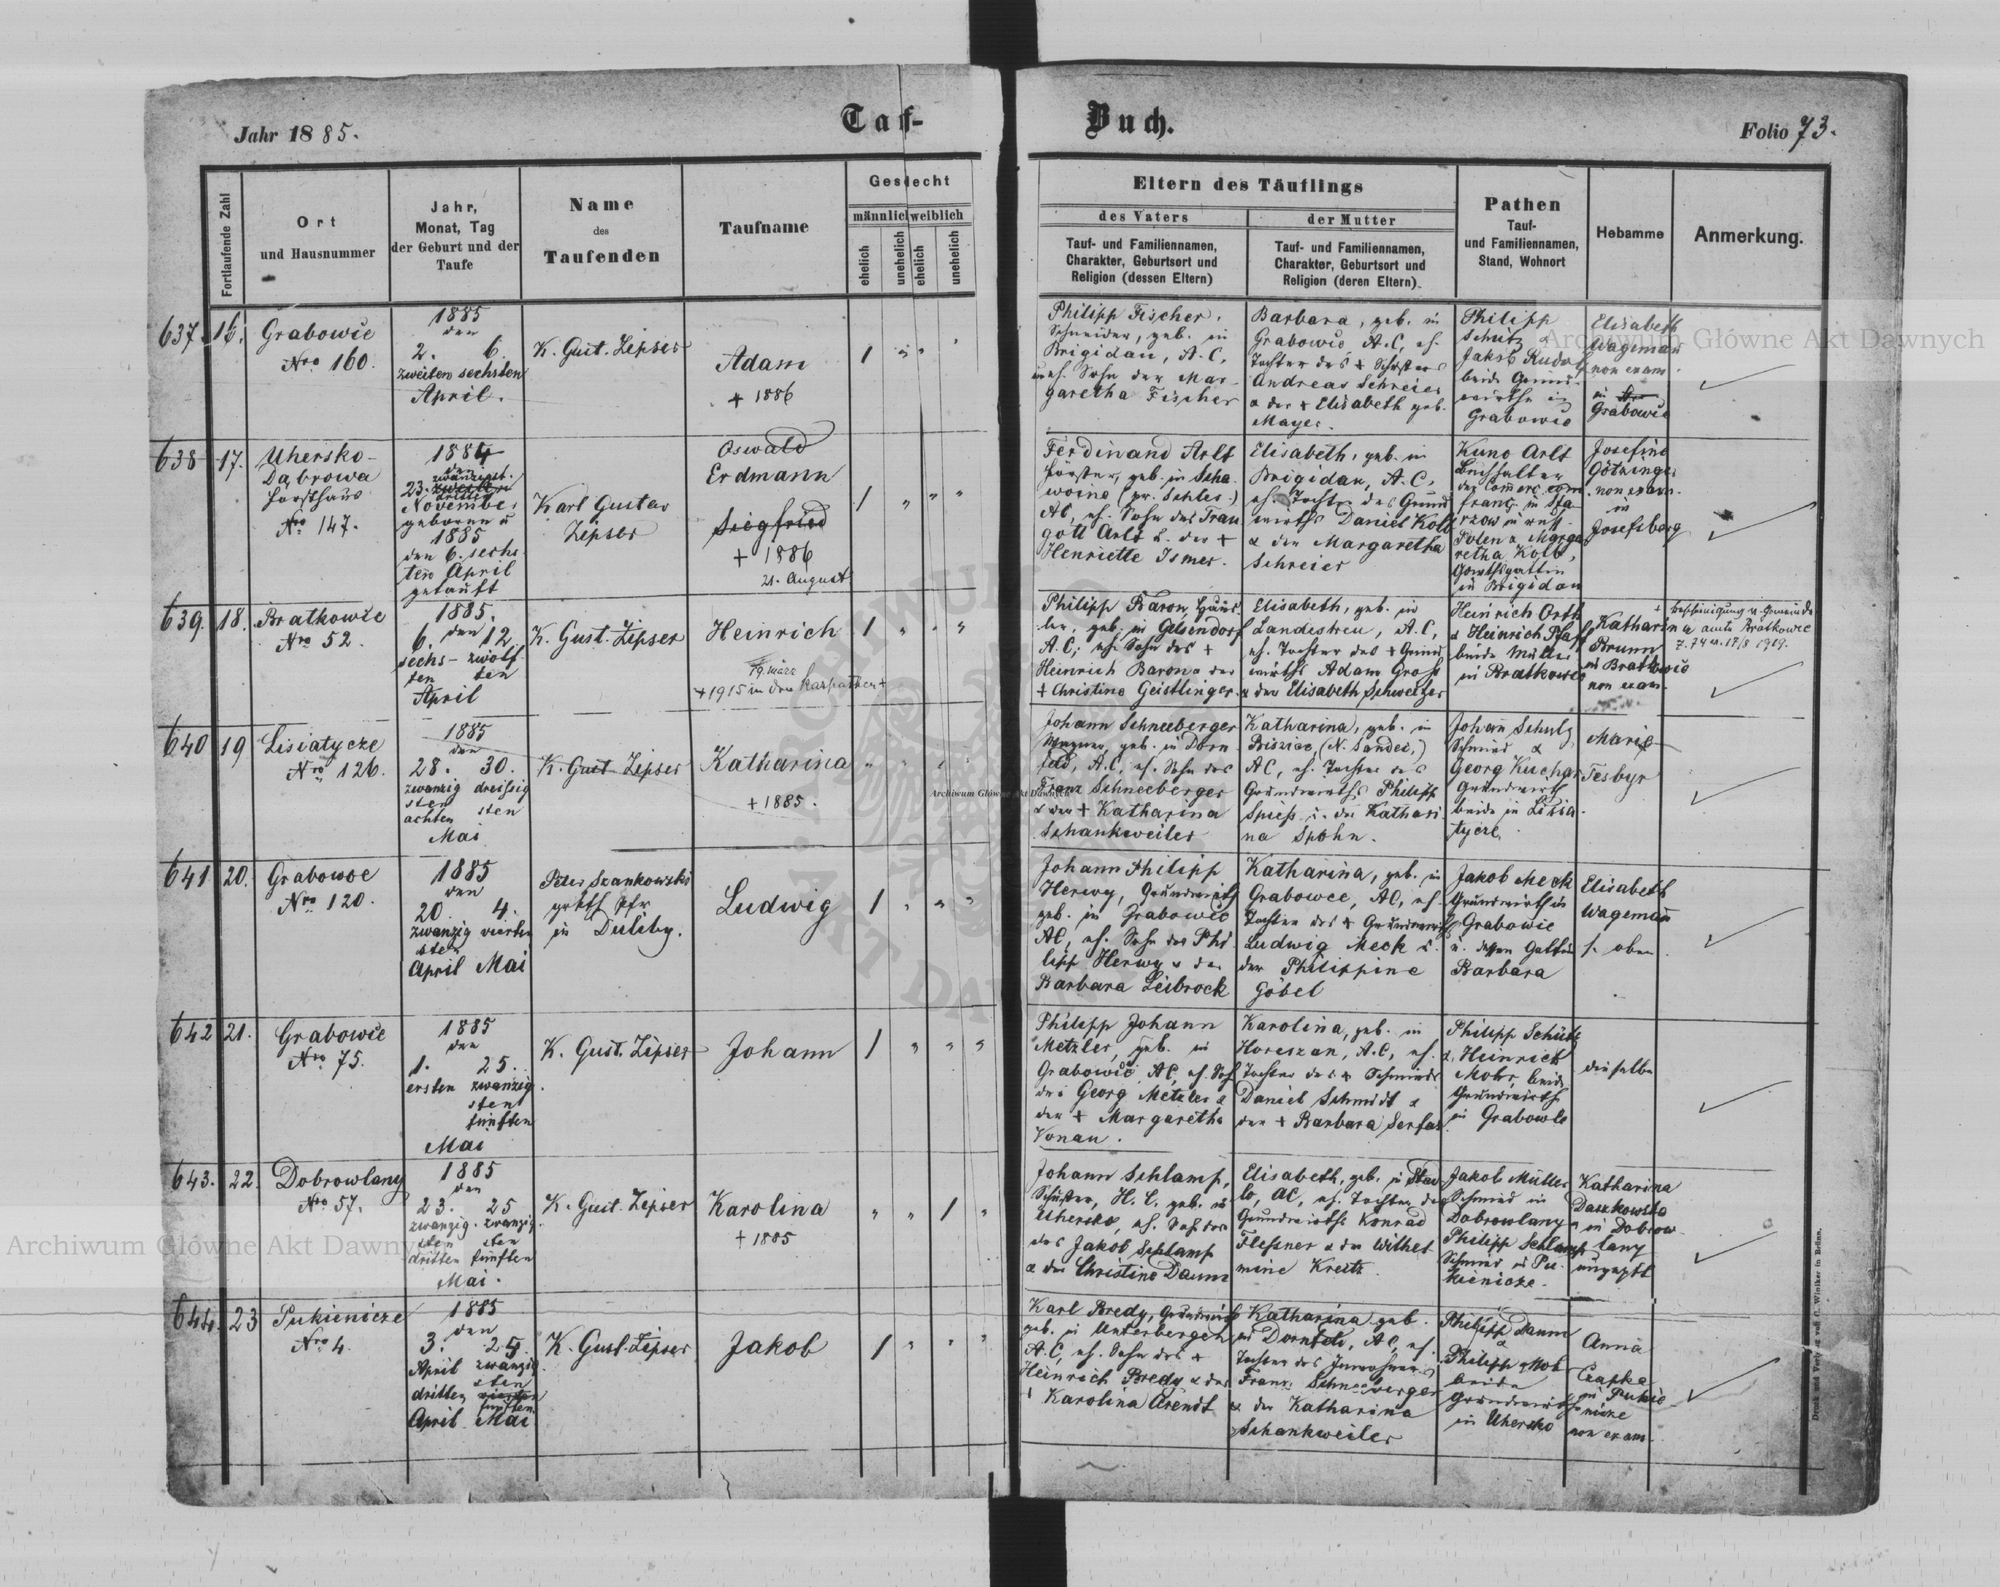 Jahr 1885.
Tauf-
Buch.
Folio 73.
Fortlaufende Zahl
Ort
und Hausnummer
Jahr,
Monat, Tag
der Geburt und der
Taufe
Name
des
Taufenden
Taufname
männlich
weiblich
ehelich
unehelich
ehelich
unehelich
Eltern des Täuflings
des Vaters
der Mutter
Tauf- und Familiennamen,
Charakter, Geburtsort und
Religion (dessen Eltern)
Tauf- und Familiennamen,
Charakter, Geburtsort und
Religion (deren Eltern).
Pathen
Tauf-
und Familiennamen,
Stand, Wohnort
Hebamme
Anmerkung.
637. 16.
Grabowce
Nro 160.
1885
den
2. 6.
zweiten sechsten
April.
K. Gust. Zipser
Adam
+ 1886
1
Philipp Fischer,
Schneider, geb. in
Brigidau, A.C,
uneh. Sohn der Mar-
garetha Fischer
Barbara, geb. in
Grabowce A.C, eh.
Tochter des + Schusters
Andreas Schreier
& der + Elisabeth geb.
Mayer.
Philipp
Schütz &
Jakob Rudolf
beide Grund-
wirthe in
Grabowce
Elisabeth
Wagemañ
non exam.
in
Grabowce
638 17.
Uhersko-
Dąbrowa
Forsthaus
Nro 147.
1884
den
23.
November
geboren u
1885
den 6. sechs-
ten April
getauft
Karl Gustav
Zipser
Oswald
Erdmann
Siegfried
+ 1886
21. August
1
Ferdinand Arlt
Förster, geb. in Scha-
woine (pr. Schles.)
AC, eh. Sohn des Trau
gott Arlt & der +
Henriette Ismer.
Elisabeth, geb. in
Brigidau, A.C,
eh. Tochter des Grund
wirths Daniel Kolb
& der Margaretha
Schreier
Kuno Arlt
Polen & Marga
retha Kolb,
in Brigidau
Josefine
Götzinger
non exam.
in
Josefsberg
639. 18.
Bratkowce
Nro 52.
1885.
den
6. 12.
sechs- zwölf
ten ten
April
K. Gust. Zipser
Heinrich
19. März
+ 1915 in den Karpathen +
1
Philipp Baron, Häus-
ler, geb. in Gelsendorf
A.C; eh. Sohn des +
Heinrich Baron & der
+ Christine Geistlinger.
Elisabeth, geb. in
Landestreu, A.C,
eh. Tochter des + Grund
wirths Adam Groß
& der Elisabeth Schweitzer
Heinrich Orth
& Heinrich Pfaff
beide Müller
in Bratkowce
Katharina
Brunn
in Bratkowce
non exam.
640 19
Lisiatycze
Nro 126.
1885
den
28. 30.
zwanzig dreißig
sten sten
achten
Mai
K. Gust. Zipser
Katharina
+ 1885.
Johann Schneeberger
Wagner, geb. in Dorn
feld, A.C, eh. Sohn des
Franz Schneeberger
& der + Katharina
Schankweiler
Katharina, geb. in
(N. Sandec,)
AC, eh. Tochter des
Grundwirths Philipp
Spieß u. der Kathari-
na Spohn.
Johañ Schulz
Schmied &
Georg Kuchar
Grundwirth
beide in Lisia-
tycze
Marie
641 20.
Grabowce
Nro 120.
1885
den
20. 4.
zwanzig vierten
sten
April Mai
Peter Szankowski
in Duliby.
Ludwig
1
Johann Philipp
Herwy, Grundwirth
geb. in Grabowce
AC, eh. Sohn des Phi-
lipp Herwy & der
Barbara Leibrock
Katharina, geb. in
Grabowce, AC, eh.
Tochter des + Grundwirth
Ludwig Meck &
der Philippine
Göbel
Jakob Meck
Grundwirth in
Grabowce
u. dessen Gattin
Barbara
Elisabeth
Wagemañ
s. oben
642 21.
Grabowce
Nro 75.
1885
den
1. 25.
ersten zwanzig
sten
fünften
Mai
K. Gust. Zipser
Johann
1
Philipp Johann
Metzler, geb. in
Grabowce, AC, eh. Sohn
des Georg Metzler &
der + Margaretha
Vonau.
Karolina, geb. in
A.C, eh.
Tochter des + Schmieds
Daniel Schmidt &
der + Barbara Serfas
Philipp Schütz
& Heinrich
Mohr, beide
Grundwirthe
in Grabowce
dieselbe
643. 22.
Dobrowlany
Nro 57.
1885
den
23. 25
zwanzig zwanzig
sten sten
dritten fünften
Mai.
K. Gust. Zipser
Karolina
+ 1885
1
Johann Schlamp,
Schuster, H.C, geb. in
Uhersko, eh. Sohn des
des Jakob Schlamp
& der Christine Daum
Elisabeth, geb. in
AC, eh. Tochter des
Grundwirths Konrad
Fleßner & der Wilhel
mine Kreitz.
Jakob Müller
Schmied in
Dobrowlany &
Philipp Schlamp
Schmied in Pu-
kienicze.
Katharina
Daszkowska
in Dobrow
lany
644. 23
Pukienicze
Nro 4.
1885
den
3. 25.
April zwanzig
sten
dritten
fünften
April Mai
K. Gust. Zipser
Jakob
1
Karl Bredy, Grundwirth
geb. in Unterbergen
A.C, eh. Sohn des +
Heinrich Bredy & der
+ Karolina Arendt
Katharina geb.
in Dornfeld, AC, eh.
Tochter des Inwohners
Franz Schneeberger
& der Katharina
Schankweiler
Philipp Daum
&
Philipp
beide
Grundwirthe
in Uhersko
Anna
Czapka
in Pukie-
nicze
non exam.
Archiwum Główne Akt Dawnych
Archiwum Główne Akt Dawnych
Archiwum Główne Akt Dawnych